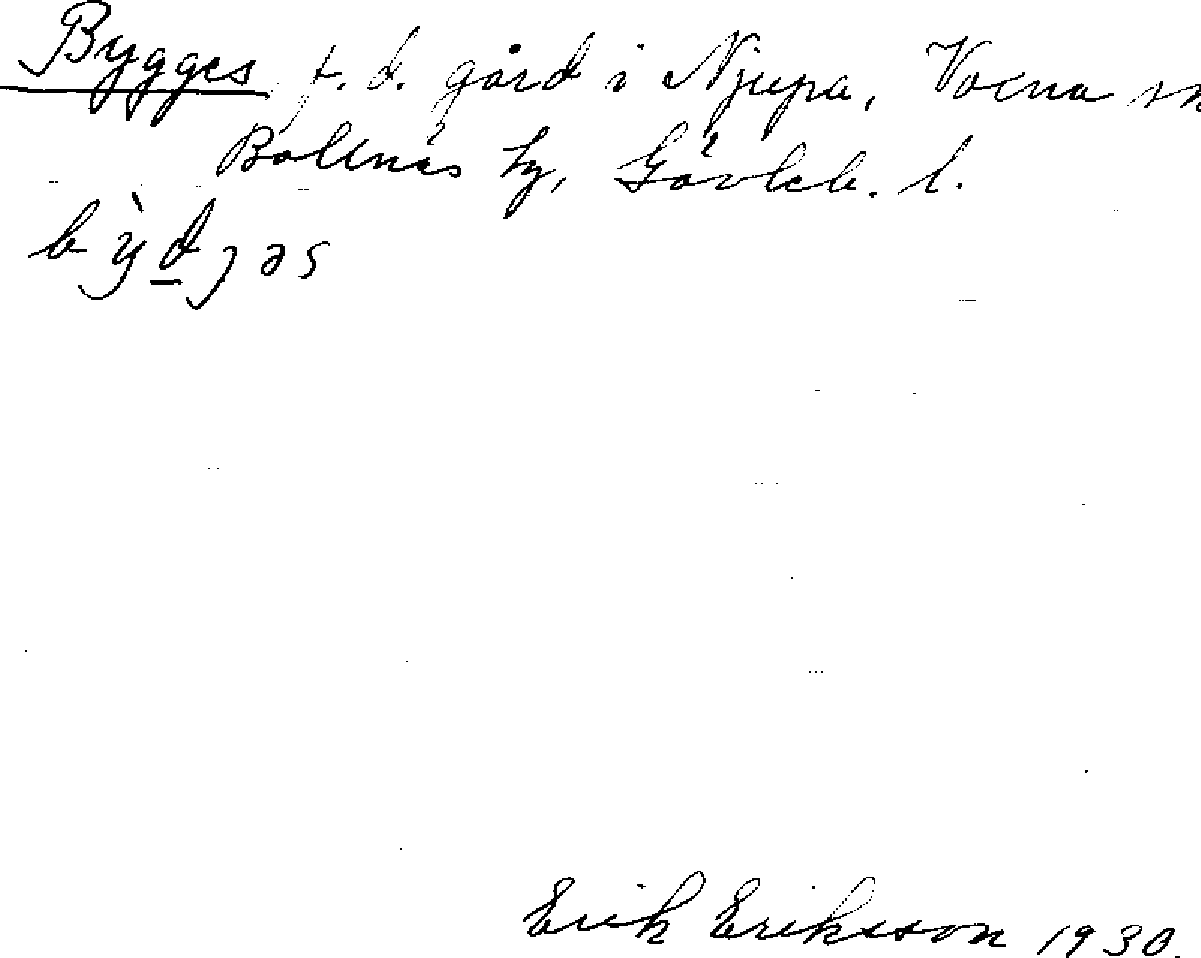 Bygges, f. d. gård i Njupa, Voxna sn
Bollnäs tg, Gävleb. l.
bỳdjəs
Erik Eriksson 1930.